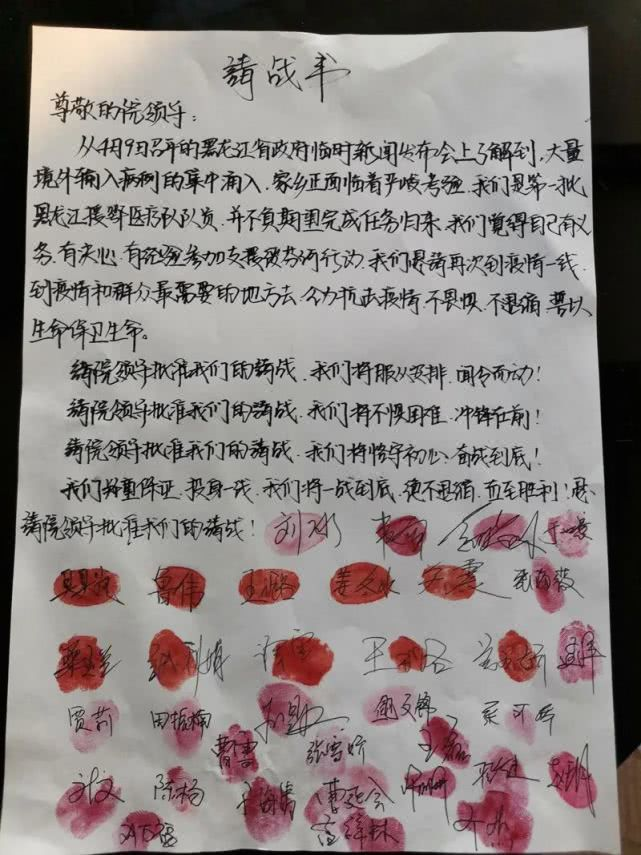 請战书
尊敬的院领导：
从4月9日召开的黑龙江省政府临时新闻发布会上了解到，大量
境外输入病例的集中涌入，家乡正面临着严峻考验，我们是第一批
黑龙江援鄂医疗队队员，并不负期望完成任务归来，我们觉得自己有义
务、有决心、有经验参加支援绥芬河行动，我们恳請再次到疫情一线，
到疫情和群众最需要的地方去，合力抗击疫情，不畏惧，不退缩，誓以
生命保卫生命。
請院领导批准我们的請战，我们将服从安排，闻令而动！
請院领导批准我们的請战，我们将不惧困难，冲锋在前！
請院领导批准我们的請战，我们将恪守初心，奋战到底！
我们郑重保证，投身一线，我们将一战到底，绝不退缩，直至胜利！恳
請院领导批准我们的請战！
鲁伟 王璐 姜久水
贾莉 田振楠
曹雪 张雪娇 王磊
陈杨 曹延会